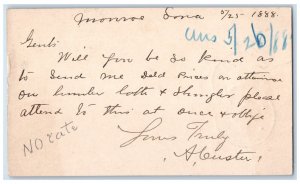 Monroe Iowa 5/25 1888.
Ans 5/26/88
Gents
Will you be so kind as
to send me Deld Prices on
on lumber lath & shingles please
attend to this at once & oblige
Yours Truly
NO rate
A Custer